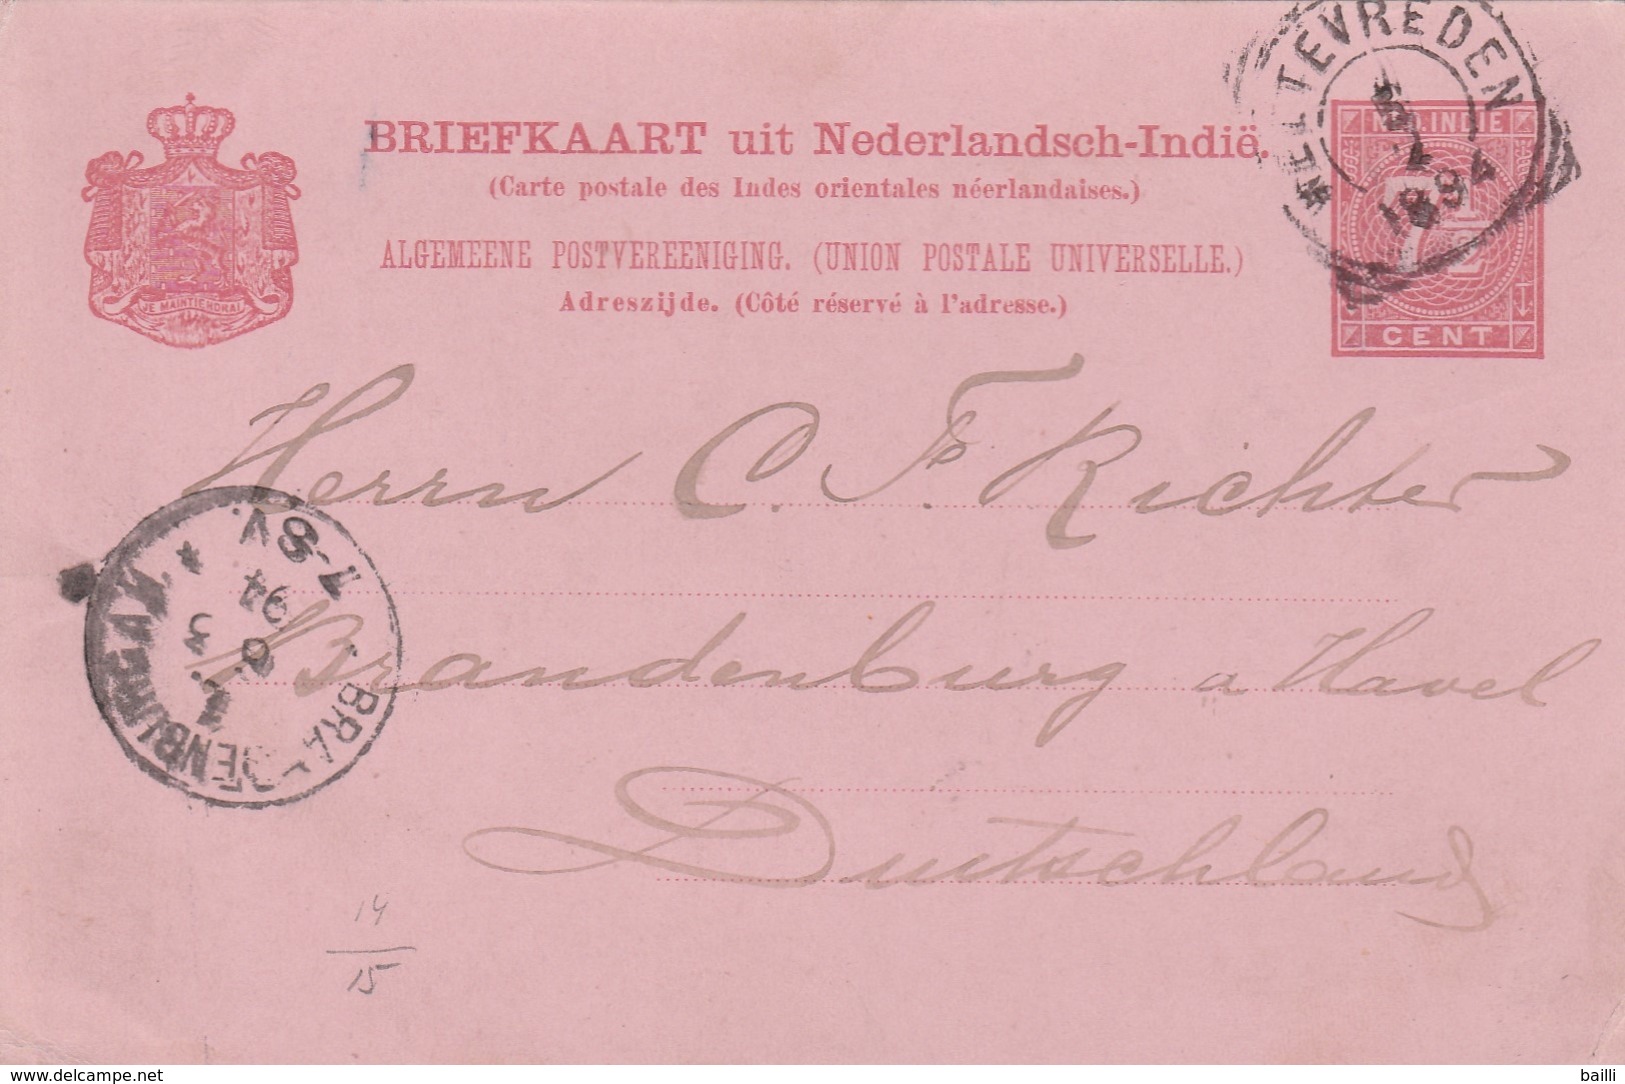 BRIEFKAART uit Nederlandsch-Indië.
(Carte postale des Indes orientales néerlandaises.)
ALGEMEENE POSTVEREENIGING. (UNION POSTALE UNIVERSELLE.)
Adreszijde. (Côté réservé à l'adresse.)
JE MAINTIENDRAI
WELTEVREDEN
1894
NED. INDIE
7 1/2
CENT
Herrn C. F. Richter
Brandenburg a Havel
Duitschland
BRANDENBURG A.H.
6 3
94
7-8V.
14
15
www.delcampe.net
bailli